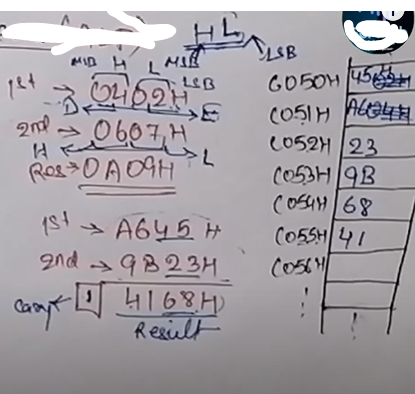 H L
MSB H L MSB LSB
LSB
1st → 0402H
D E
2nd → 0607H
H L
Res → 0A09H
1st → A645H
2nd → 9B23H
Carry ← 1 4168H
Result
C050H 45H
C051H A6
C052H 23
C053H 9B
C054H 68
C055H 41
C056H